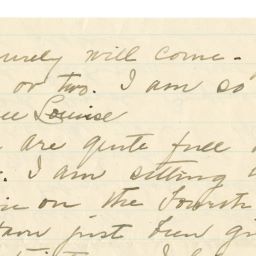 surely will come -
or two. I am so
see Louise
are quite full
I am sitting
on the Fourth
just been